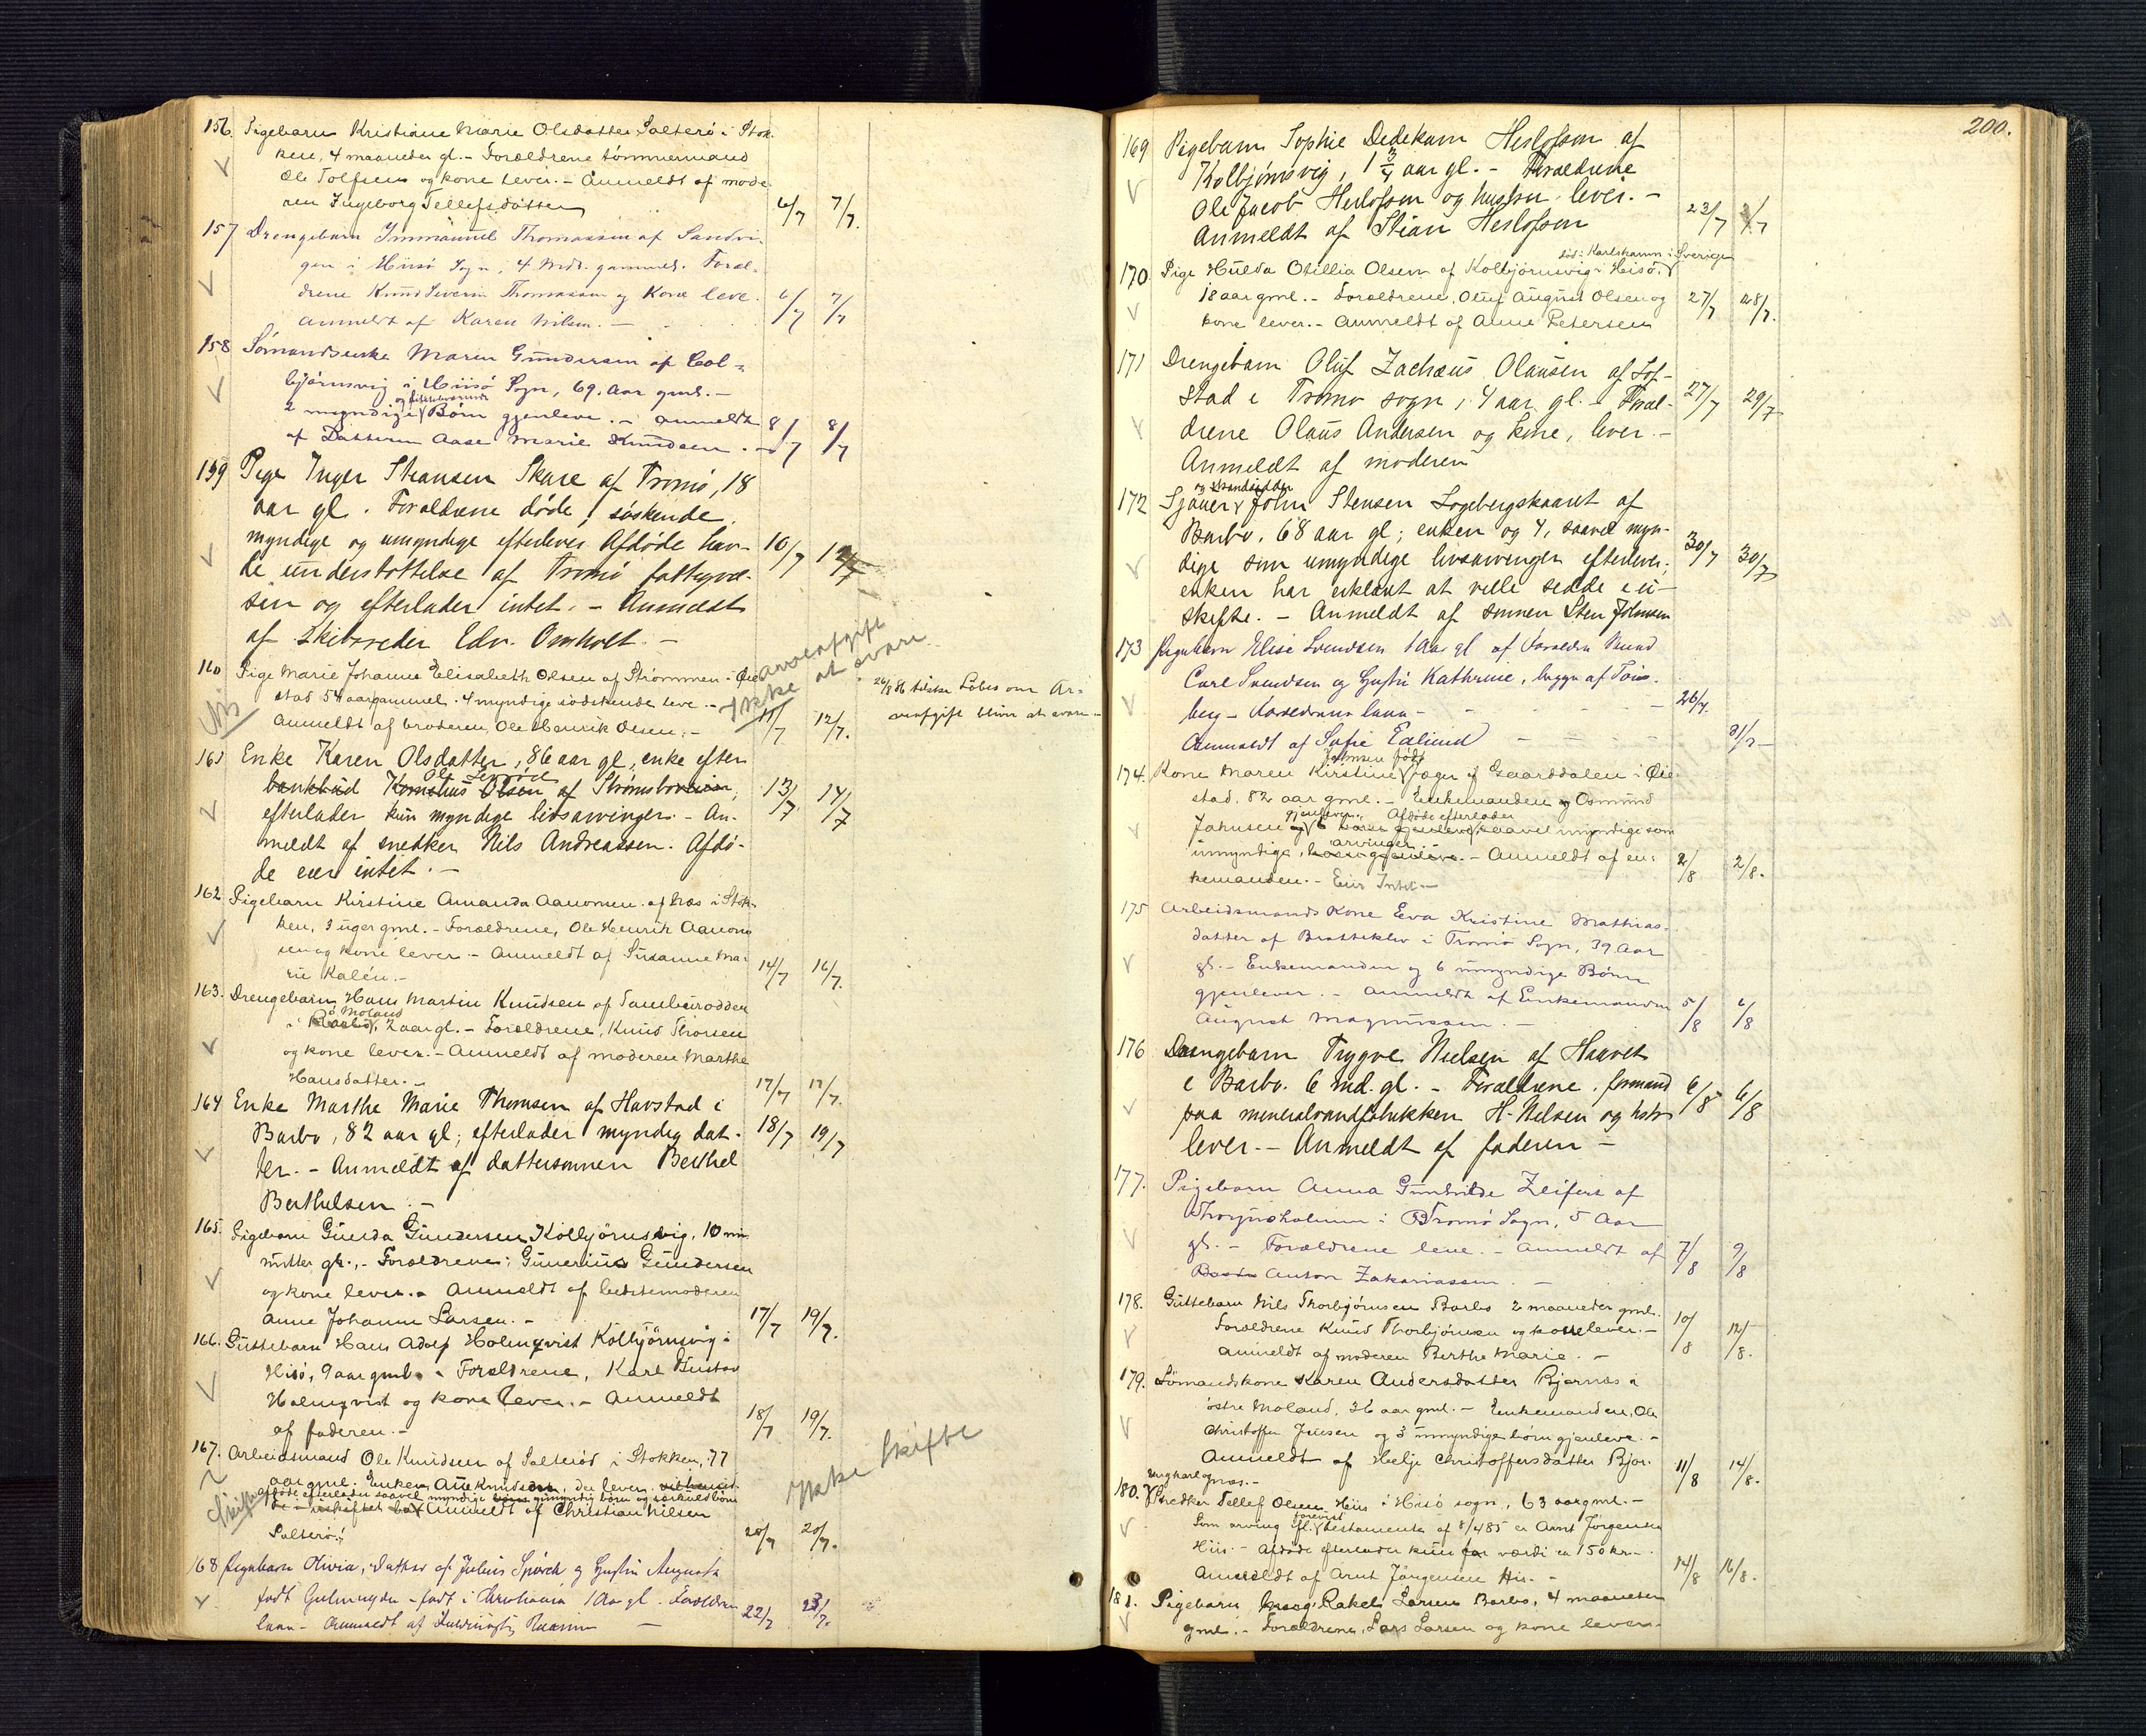 156. Pigebarn Kristiane Marie Olsdatter Salterö i Stok-
ken, 4 maaneder gl. - Forældrene tømmermand
Ole Tolfsen og kone lever. - Anmeldt af mode-
ren Ingeborg Tellefsdatter 6/7 7/7.
157 Drengebarn Immanuel Thomassen af Sandvi-
gen i Hisö Sogn, 4 Mdr. gammel. Foræl-
drene Knud Severin Thomassen og Kone leve.
anmeldt af Karen Nilsen. - 6/7 7/7
158 Sömandsenke Maren Gundersen af Col-
björnsvig i Hiisö Sogn, 69 Aar gml. -
2 myndige Børn gjenleve. - anmeldt
af Datteren Aase Marie Knudsen. - 8/7 8/7
159 Pige Inger Stiansen Skare af Tromø, 18
aar gl. Forældrene døde, søskende
myndige og umyndige efterlever. Afdøde hav-
de understøttelse af Tromø fattigvæ-
sen og efterlader intet. - Anmeldt
af skibsreder Edv. Omholt. - 10/7 12/7
160 Pige Marie Johanne Elisabeth Olsen af Strømmen i Øie-
stad 54 aar gammel. 4 myndige södskende leve. -
Anmeldt af broderen, Ole Henrik Olsen. - 11/7 12/7.
arveafgift
Ikke at svare
Ar-
veafgift bliver at svare -
161 Enke Karen Olsdatter, 86 aar gl, enke efter
Ole
bankbud Kornelius Olsen af Strømsbo
efterlader kun myndige livsarvinger. - An-
meldt af snedker Nils Andreassen. Afdø-
de eier intet. - 13/7 14/7
162 Pigebarn Kirstine Amanda Aanonsen af Næs i Stok-
ken, 3 uger gml. - Forældrene, Ole Henrik Aanon-
sen og kone lever. - Anmeldt af Susanne Ma-
rie Kalén. - 14/7 16/7.
163. Drengebarn Hans Martin Knudsen af Tamburodden
ö Moland
i Barbo, 2 aar gl. - Forældrene, Knud Thorsen
og kone lever. - Anmeldt af moderen Marthe
Hansdatter. - 17/7 17/7.
164 Enke Marthe Marie Thomsen af Havstad i
Barbo, 82 aar gl; efterlader myndig dat-
ter. - Anmeldt af dattersønnen Berthel
Berthelsen. - 18/7 19/7
165. Pigebarn Gunda Gundersen Kolbjörnsvig, 10 mi-
nutter gl. - Forældrene; Gunerius Gundersen
og kone lever. - Anmeldt af bedstemoderen
Anne Johanne Larsen. - 17/7 19/7.
166. Guttebarn Hans Adolf Holmqvist Kolbjörnsvig i
Hisö, 9 aar gml. - Forældrene, Karl Gustav
Holmqvist og kone lever. - Anmeldt
af faderen. - 18/7 19/7.
167. Arbeidsmand Ole Knudsen af Salteröd i Stokken, 77
aar gml. Enken Ane Knudsen, der lever
afdøde efterlader saavel myndige umyndig børn og særkuldbörn
Anmeldt af Christian Nilsen
Salterö. 20/7 20/7.
Ikke Skifte
168 Pigebarn Olivia, Datter af Julius Spörck og Hustru Augusta
født - født i Christiania 1 Aar gl. Forældre
leve - Anmeldt af 22/7 23/7.
200.
169 Pigebarn Sophie Dedekam Herlofson af
Kolbjørnsvig, 1 3/4 aar gl. - Forældrene
Ole Jacob Herlofson og hustru lever. -
Anmeldt af Stian Herlofson 23/7
170. Pige Hulda Otillia Olsen af Kolbjörnsvig i Hisö,
död i Karlshamn i Sverige
18 aar gml. - Forældrene, Oluf August Olsen og
kone lever. - Anmeldt af Anne Petersen 27/7 28/7.
171 Drengebarn Oluf Zachæus Olausen af Lof-
stad i Tromø sogn, 4 aar gl. - Foræl-
drene Olaus Andersen og kone, lever. -
Anmeldt af moderen 27/7 29/7
172 Sjauer og strandsidder John Stensen Sogebergskaaret af
Barbo, 68 aar gl; enken og 4, saavel myn-
dige som umyndige livsarvinger efterlever;
enken har erklært at ville sidde i u-
skifte. - Anmeldt af sønnen Sten Johnsen 30/7 30/7
173 Pigebarn Elise Svendsen 1 Aar gl af Forældre
Carl Svendsen og Hustru Kathrine, begge af Töns-
berg - Forældrene leve - 26/7.
Anmeldt af Sofie Edlund 31/7 -
174. Kone Maren Kirstine Johnsen født Jæger af Gaarddalen i Øie-
stad. 82 aar gml. - Enkemanden Osmund
gjenlever. Afdøde efterlader
Johnsen saavel myndige som
umyndige arvinger. - Anmeldt af en-
kemanden. - Eier Intet. - 2/8 2/8.
175 Arbeidsmands Kone Eva Kristine Mathias-
datter af Bratteklev i Tromö Sogn, 39 Aar
gl. - Enkemanden og 6 umyndige Börn
gjenlever. - anmeldt af Enkemanden
August Magnussen. - 5/8 6/8
176 Drengebarn Trygve Nielsen af Haavet
i Barbo. 6 md. gl. - Forældrene, formand
paa mineralvandfabrikken H. Nielsen og hstr
lever. - Anmeldt af faderen - 6/8 6/8
177. Pigebarn Anna Gunhilde Zeifert af
Thorjusholmen i Tromö Sogn, 5 Aar
gl. - Forældrene leve. - Anmeldt af
Anton Zakariassen. - 7/8 9/8
178. Guttebarn Nils Thorbjörnsen Barbo 2 maaneder gml.
Forældrene Knud Thorbjörnsen og kone lever. -
Anmeldt af moderen Berthe Marie. - 10/8 12/8.
179. Sömandskone Karen Andersdatter Bjornæs i
östre Moland, 36 aar gml. - Enkemanden, Ole
Christoffer Jensen og 3 umyndige børn gjenleve. -
Anmeldt af Helje Christoffersdatter Bjor-
næs. - 11/8 14/8.
180. Ungkarl og Snedker Tellef Olsen Hiis i Hisö sogn, 63 aar gml. -
Som arving efl. forevist testamente af 8/4 85 er Arnt Jörgensen
Hiis. - Afdøde efterlader kun værdi ca 150 kr. -
Anmeldt af Arnt Jörgensen His. - 14/8 16/8.
181. Pigebarn Rakel Larsen Barbo, 4 maaneder
gml. - Forældrene, Lars Larsen og kone lever. -